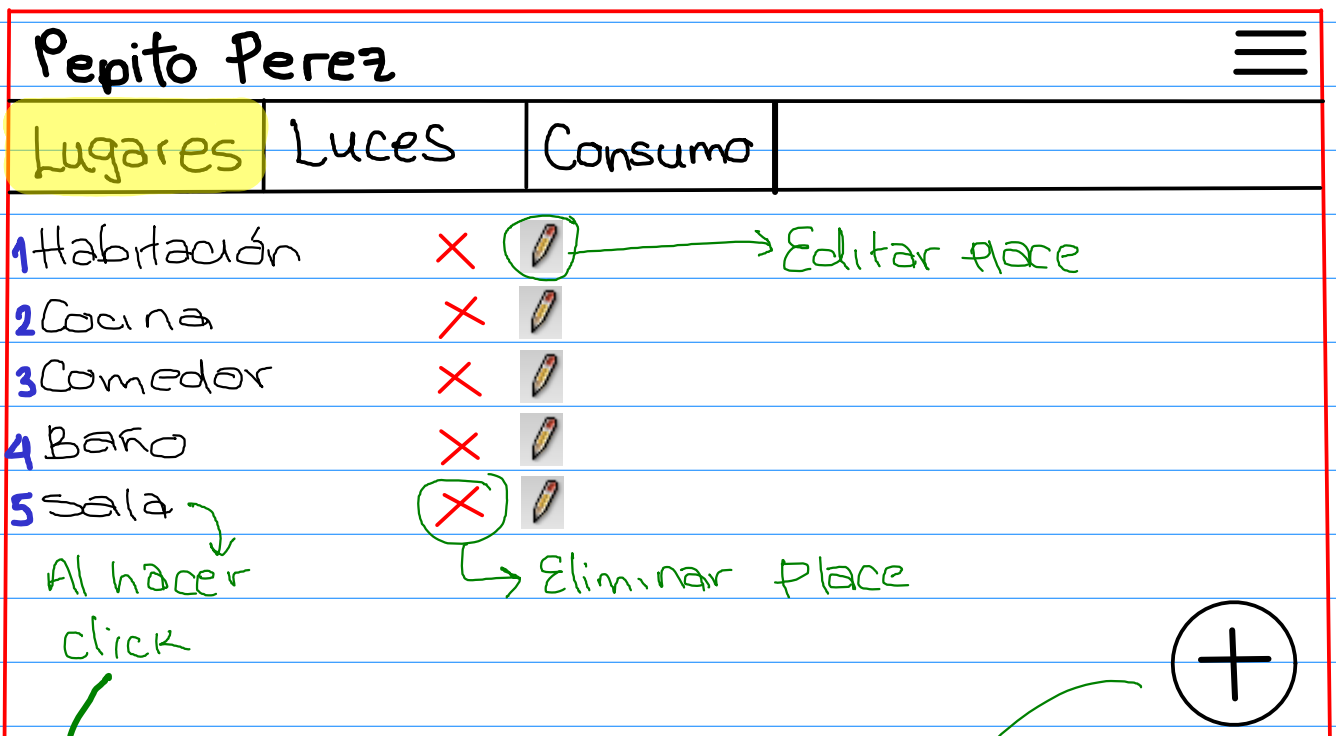 Pepito Perez
Lugares Luces Consumo
1 Habitación Editar place
2 Cocina
3 Comedor
4 Baño
5 Sala
Al hacer Eliminar Place
click